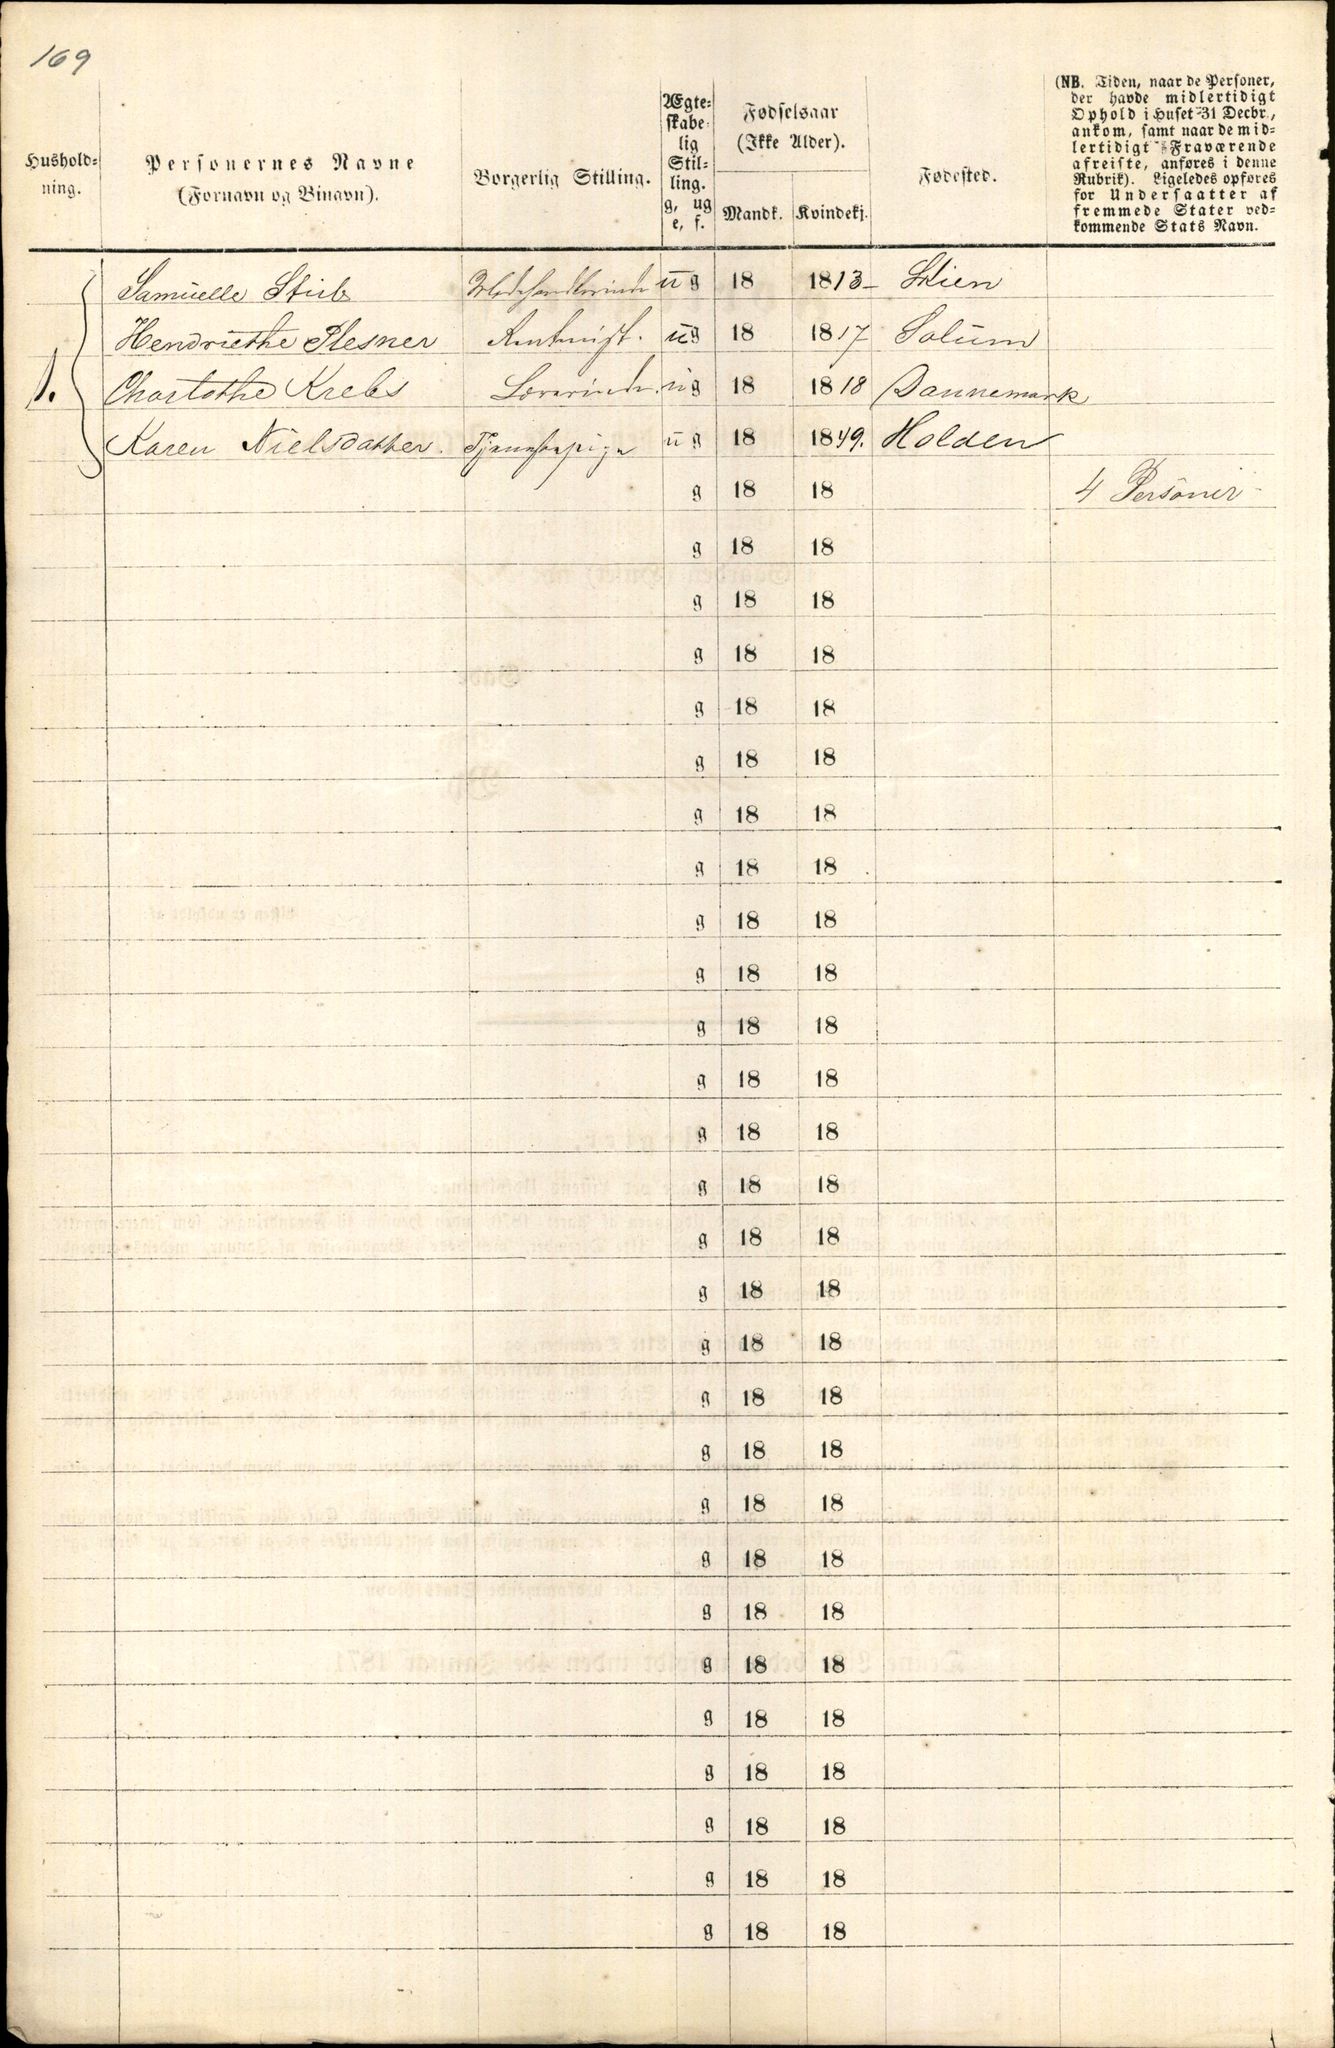 169
Hushold-
ning.
Personernes Navne
(Fornavn og Binavn).
Borgerlig Stilling.
Ægte-
skabe-
lig
Stil-
ling.
g, ug
e, f.
Fødselsaar
(Ikke Alder).
Mandk.
Kvindekj.
Fødested.
(NB. Tiden, naar de Personer,
der havde midlertidigt
Ophold i Huset 31 Decbr.,
ankom, samt naar de mid-
lertidigt Fraværende
afreiste, anføres i denne
Rubrik). Ligeledes opføres
for Undersaatter af
fremmede Stater ved-
kommende Stats Navn.
Samuelle ug 18 1813 Skien
Hendriethe Plesner ug 18 1817 Solum
1. Charlothe Krebs Lærerinde ug 18 1818 Dannemark
Karen Nielsdatter. Tjenestepige ug 18 1849. Holden
g 18 18 4 Personer
g 18 18
g 18 18
g 18 18
g 18 18
g 18 18
g 18 18
g 18 18
g 18 18
g 18 18
g 18 18
g 18 18
g 18 18
g 18 18
g 18 18
g 18 18
g 18 18
g 18 18
g 18 18
g 18 18
g 18 18
g 18 18
g 18 18
g 18 18
g 18 18
g 18 18
g 18 18
g 18 18